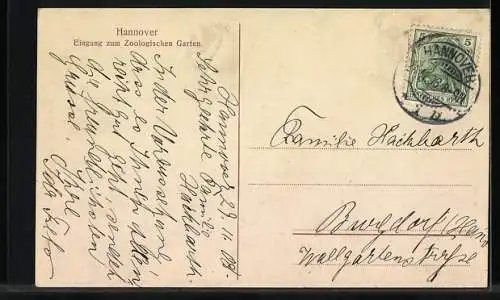 Hannover
Eingang zum Zoologischen Garten.
Hannover 29. 11. 08.
Sehr geehrte Familie
Hachbarth.
In der Voraussetzung
dass es Ihnen allen
recht gut geht, sendet
die freundlichsten
Grüsse, Ihre
5
HANNOVER
Familie Hachbarth
Burgdorf/Hann
Wallgartenstraße